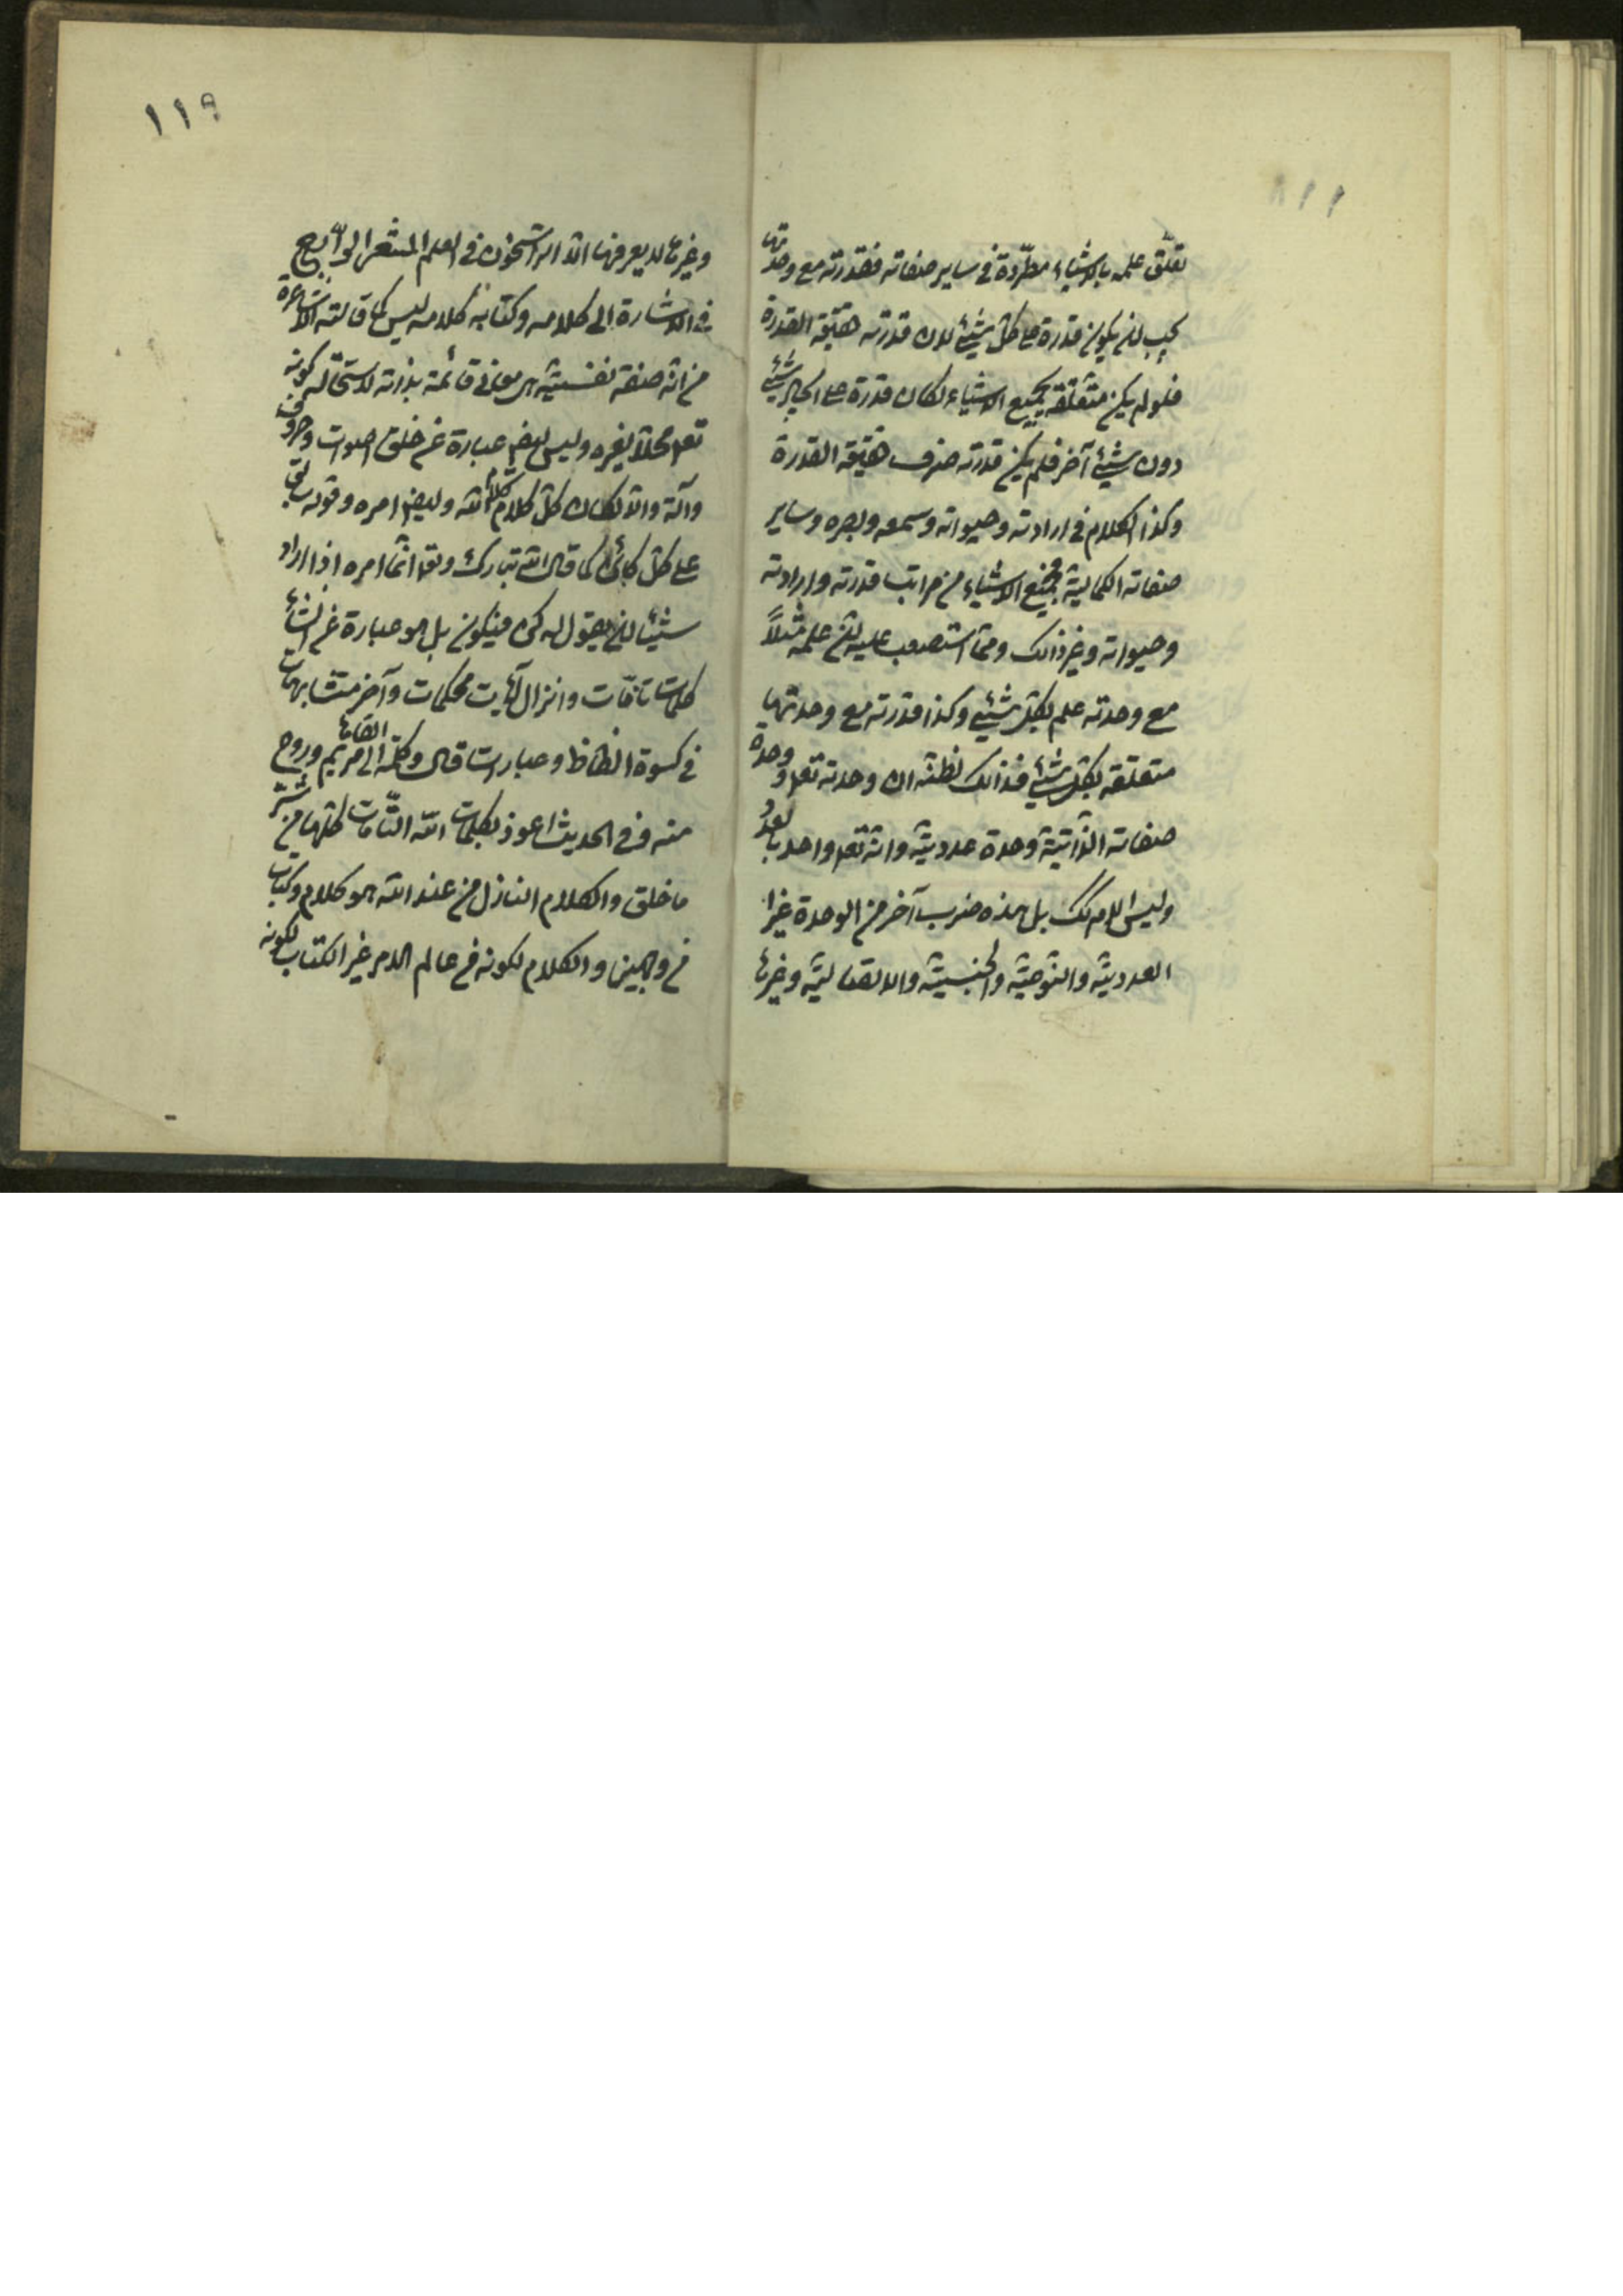 ١١٨
تعلّق علمه بالاشياء مطّردة في ساير صفاته فقدرته مع وحدتها
يجب ان يكون قدرة على كل شيئ لان قدرته حقيقة القدرة
فلو لم يكن متعلّقة بجميع الاشياء لكان قدرة على ايجاد شيئ
دون شيئ آخر فلم يكن قدرته صرف حقيقة القدرة
وكذا الكلام في ارادته وحيوته وسمعه وبصره وساير
صفاته الكماليّة فجميع الاشياء من مراتب قدرته وارادته
وحيوته وغير ذالك وممّا استصعب عليه انّ علمه مثلاً
مع وحدته علم بكلّ شيئ وكذا قدرته مع وحدتها
متعلّقة بكلّ شيئ فذالك لظنّه ان وحدته تعه ووحدة
صفاته الذّاتيّة وحدة عدديّة وانّه تعه واحد بالعدد
وليس الامر كك بل هذه ضرب آخر من الوحدة غير
العدديّة والنّوعيّة والجنسيّة والاتصاليّة وغيرها
١١٩
وغيرها لا يعرفها الّا الراسخون في العلم المشعر الرابع
في الاشارة الى كلامه وكتابه كلامه ليس كما قالته الاشاعرة
من انّه صفة نفسيّة هي معاني قائمة بذاته لاستحالة كونه
تعه محلّا لغيره وليس ايضا عبارة عن خلق اصوات وحروف
دآلة والّا لكان كلّ كلام كلام الله وايضا امره وقوله سابق
على كل كائن كما قال الله تبارك وتعه انّما امره اذا اراد
شيئا ان يقول له كن فيكون بل هو عبارة عن انشاء
كلمات تامّات وانزال آيات محكمات وآخر متشابهات
في كسوة الفاظ وعبارات قال وكلمة القاها الى مريم وروح
منه وفي الحديث اعوذ بكلمات الله التّامّات كلّها من شرّ
ما خلق والكلام النازل من عند الله هو كلام وكتاب
من وجهين والكلام لكونه من عالم الامر غير الكتاب لكونه